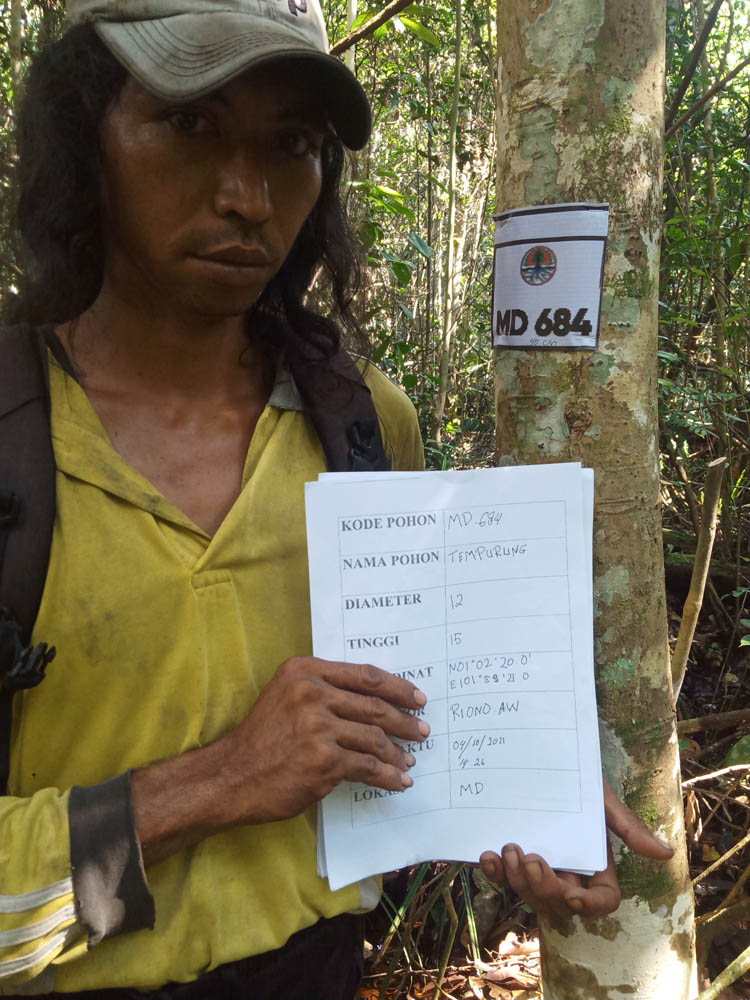 MD 684
KODE POHON MD.684
NAMA POHON TEMPURUNG
DIAMETER 12
TINGGI 15
DINAT N01°02'20 0'
E101°59'21 0
OR RIONO AW
AKTU 04/10/2021
26
LOKA MD